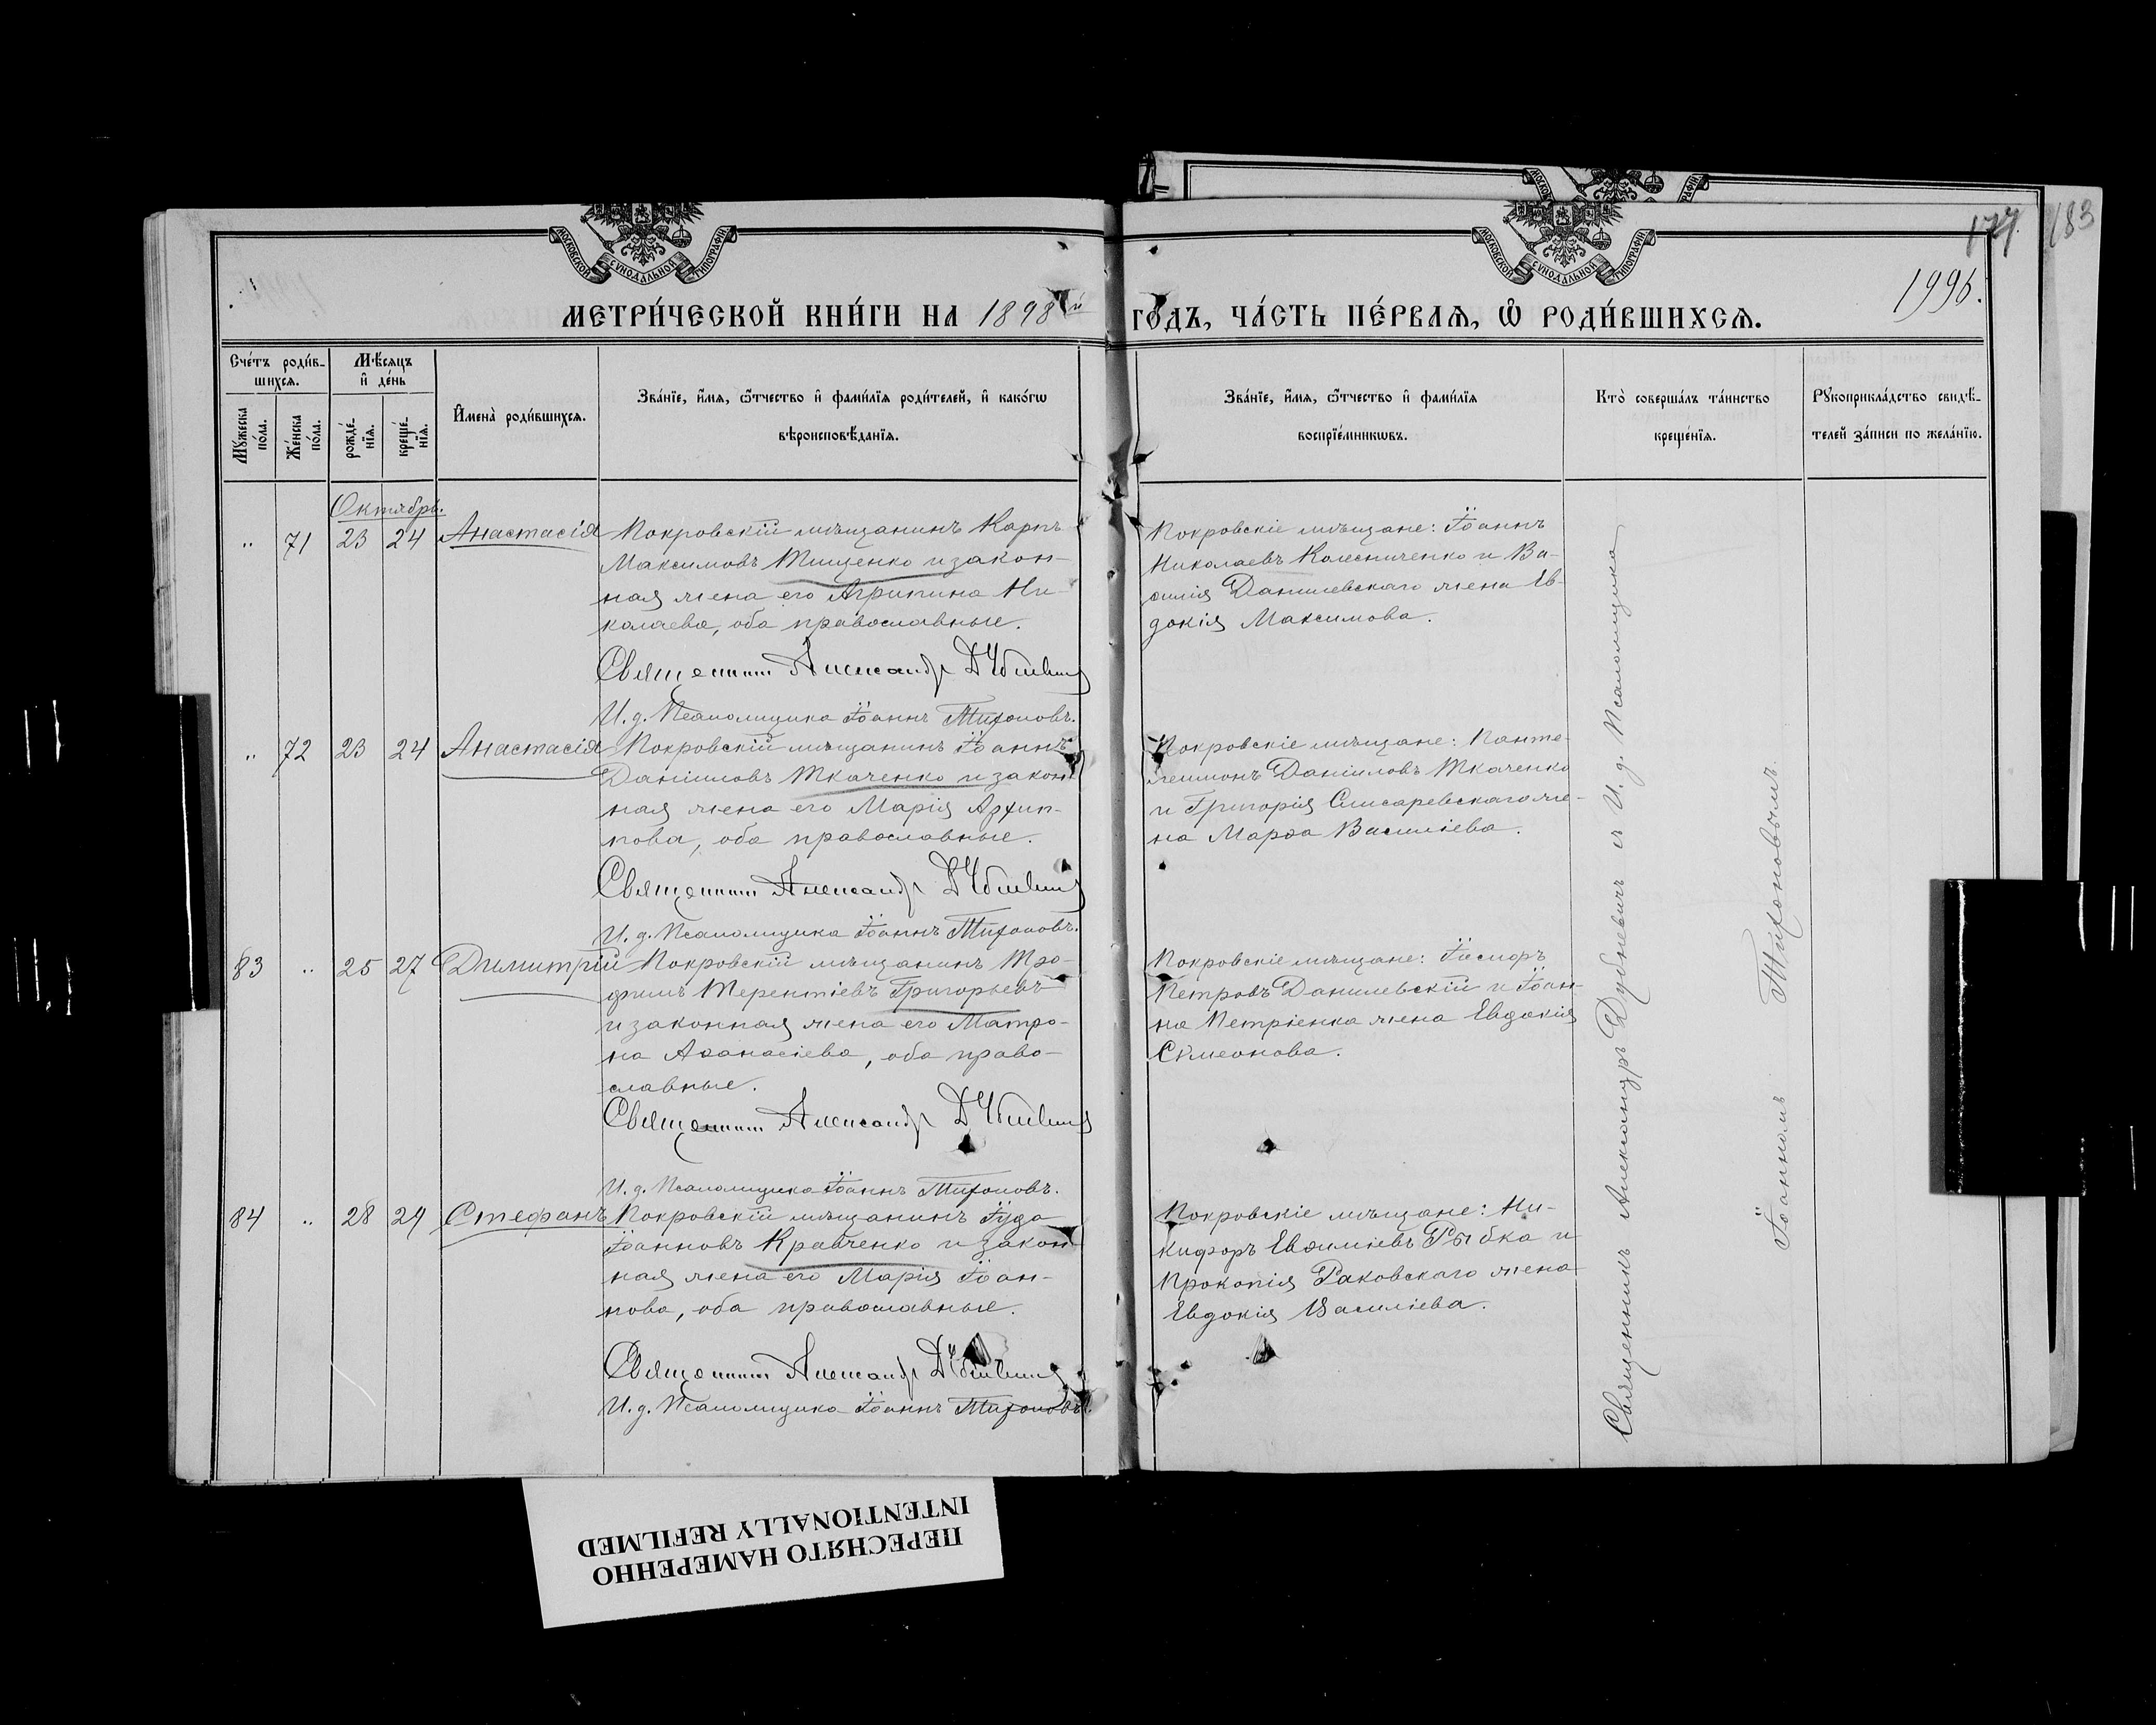 МОСКОВСКОЙ СѴНОДАЛЬНОЙ ТИПОГРАФІИ
МОСКОВСКОЙ СѴНОДАЛЬНОЙ ТИПОГРАФІИ
183
1996.
МЕТРИ́ЧЕСКОЙ КНИ́ГИ НА 1898й ГО́ДЪ, ЧА́СТЬ ПЕ́РВАѦ, Ѡ҆ РОДИ́ВШИХСѦ.
Сче́тъ роди́вшихсѧ.
Мꙋ́жеска по́ла.
Же́нска по́ла.
Мѣ́сѧцъ и҆ де́нь
рожде́нїѧ.
креще́нїѧ.
И҆мена̀ роди́вшихсѧ.
Зва́нїе, и҆́мѧ, ѻ҆́тчество и҆ фами́лїѧ роди́телей, и҆ како́гѡ
вѣроисповѣ́данїѧ.
Зва́нїе, и҆́мѧ, ѻ҆́тчество и҆ фами́лїѧ
воспрїе́мникѡвъ.
Кто̀ соверша́лъ та́инство
креще́нїѧ.
Рꙋкоприкла́дство свидѣ́-
телей за́писи по жела́нїю.
Октябрь.
„ 71 23 24 Анастасія Покровскій мѣщанинъ Карпъ
Максимовъ Тищенко и закон-
ная жена его Агрипина Ни-
колаева, оба православные.
Священникъ Александръ Дубневичъ
И. д. Псаломщика Іоаннъ Тихоновъ.
Покровскіе мѣщане: Іоаннъ
Николаевъ Колесниченко и Ва-
силія Данилевскаго жена Ев-
докія Максимова.
„ 72 23 24 Анастасія Покровскій мѣщанинъ Іоаннъ
Даніиловъ Ткаченко и закон-
ная жена его Марія Архип-
пова, оба православные.
Священникъ Александръ Дубневичъ
И. д. Псаломщика Іоаннъ Тихоновъ.
Покровскіе мѣщане: Панте-
леимонъ Даніиловъ Ткаченко
и Григорія Слисаревскаго же-
на Марѳа Василіева.
83 „ 25 27 Димитрій Покровскій мѣщанинъ Тро-
фимъ Терентіевъ Григорьевъ
и законная жена его Матро-
на Аѳанасіева, оба право-
славные.
Священникъ Александръ Дубневичъ
И. д. Псаломщика Іоаннъ Тихоновъ.
Покровскіе мѣщане:
Петровъ Данилевскій и Іоан-
на Петріенка жена Евдокія
Сѵмеонова.
84 „ 28 29 Стефанъ Покровскій мѣщанинъ Іуда
Іоанновъ Кравченко и закон-
ная жена его Марія Іоан-
нова, оба православные.
Священникъ Александръ Дубневичъ
И. д. Псаломщика Іоаннъ Тихоновъ.
Покровскіе мѣщане: Ни-
кифоръ Евѳиміевъ Рыбка и
Прокопія Раковскаго жена
Евдокія Василіева.
Священникъ Александръ Дубневичъ съ И. д. Псаломщика
Іоанномъ Тихоновымъ.
ПЕРЕСНЯТО НАМЕРЕННО
INTENTIONALLY REFILMED